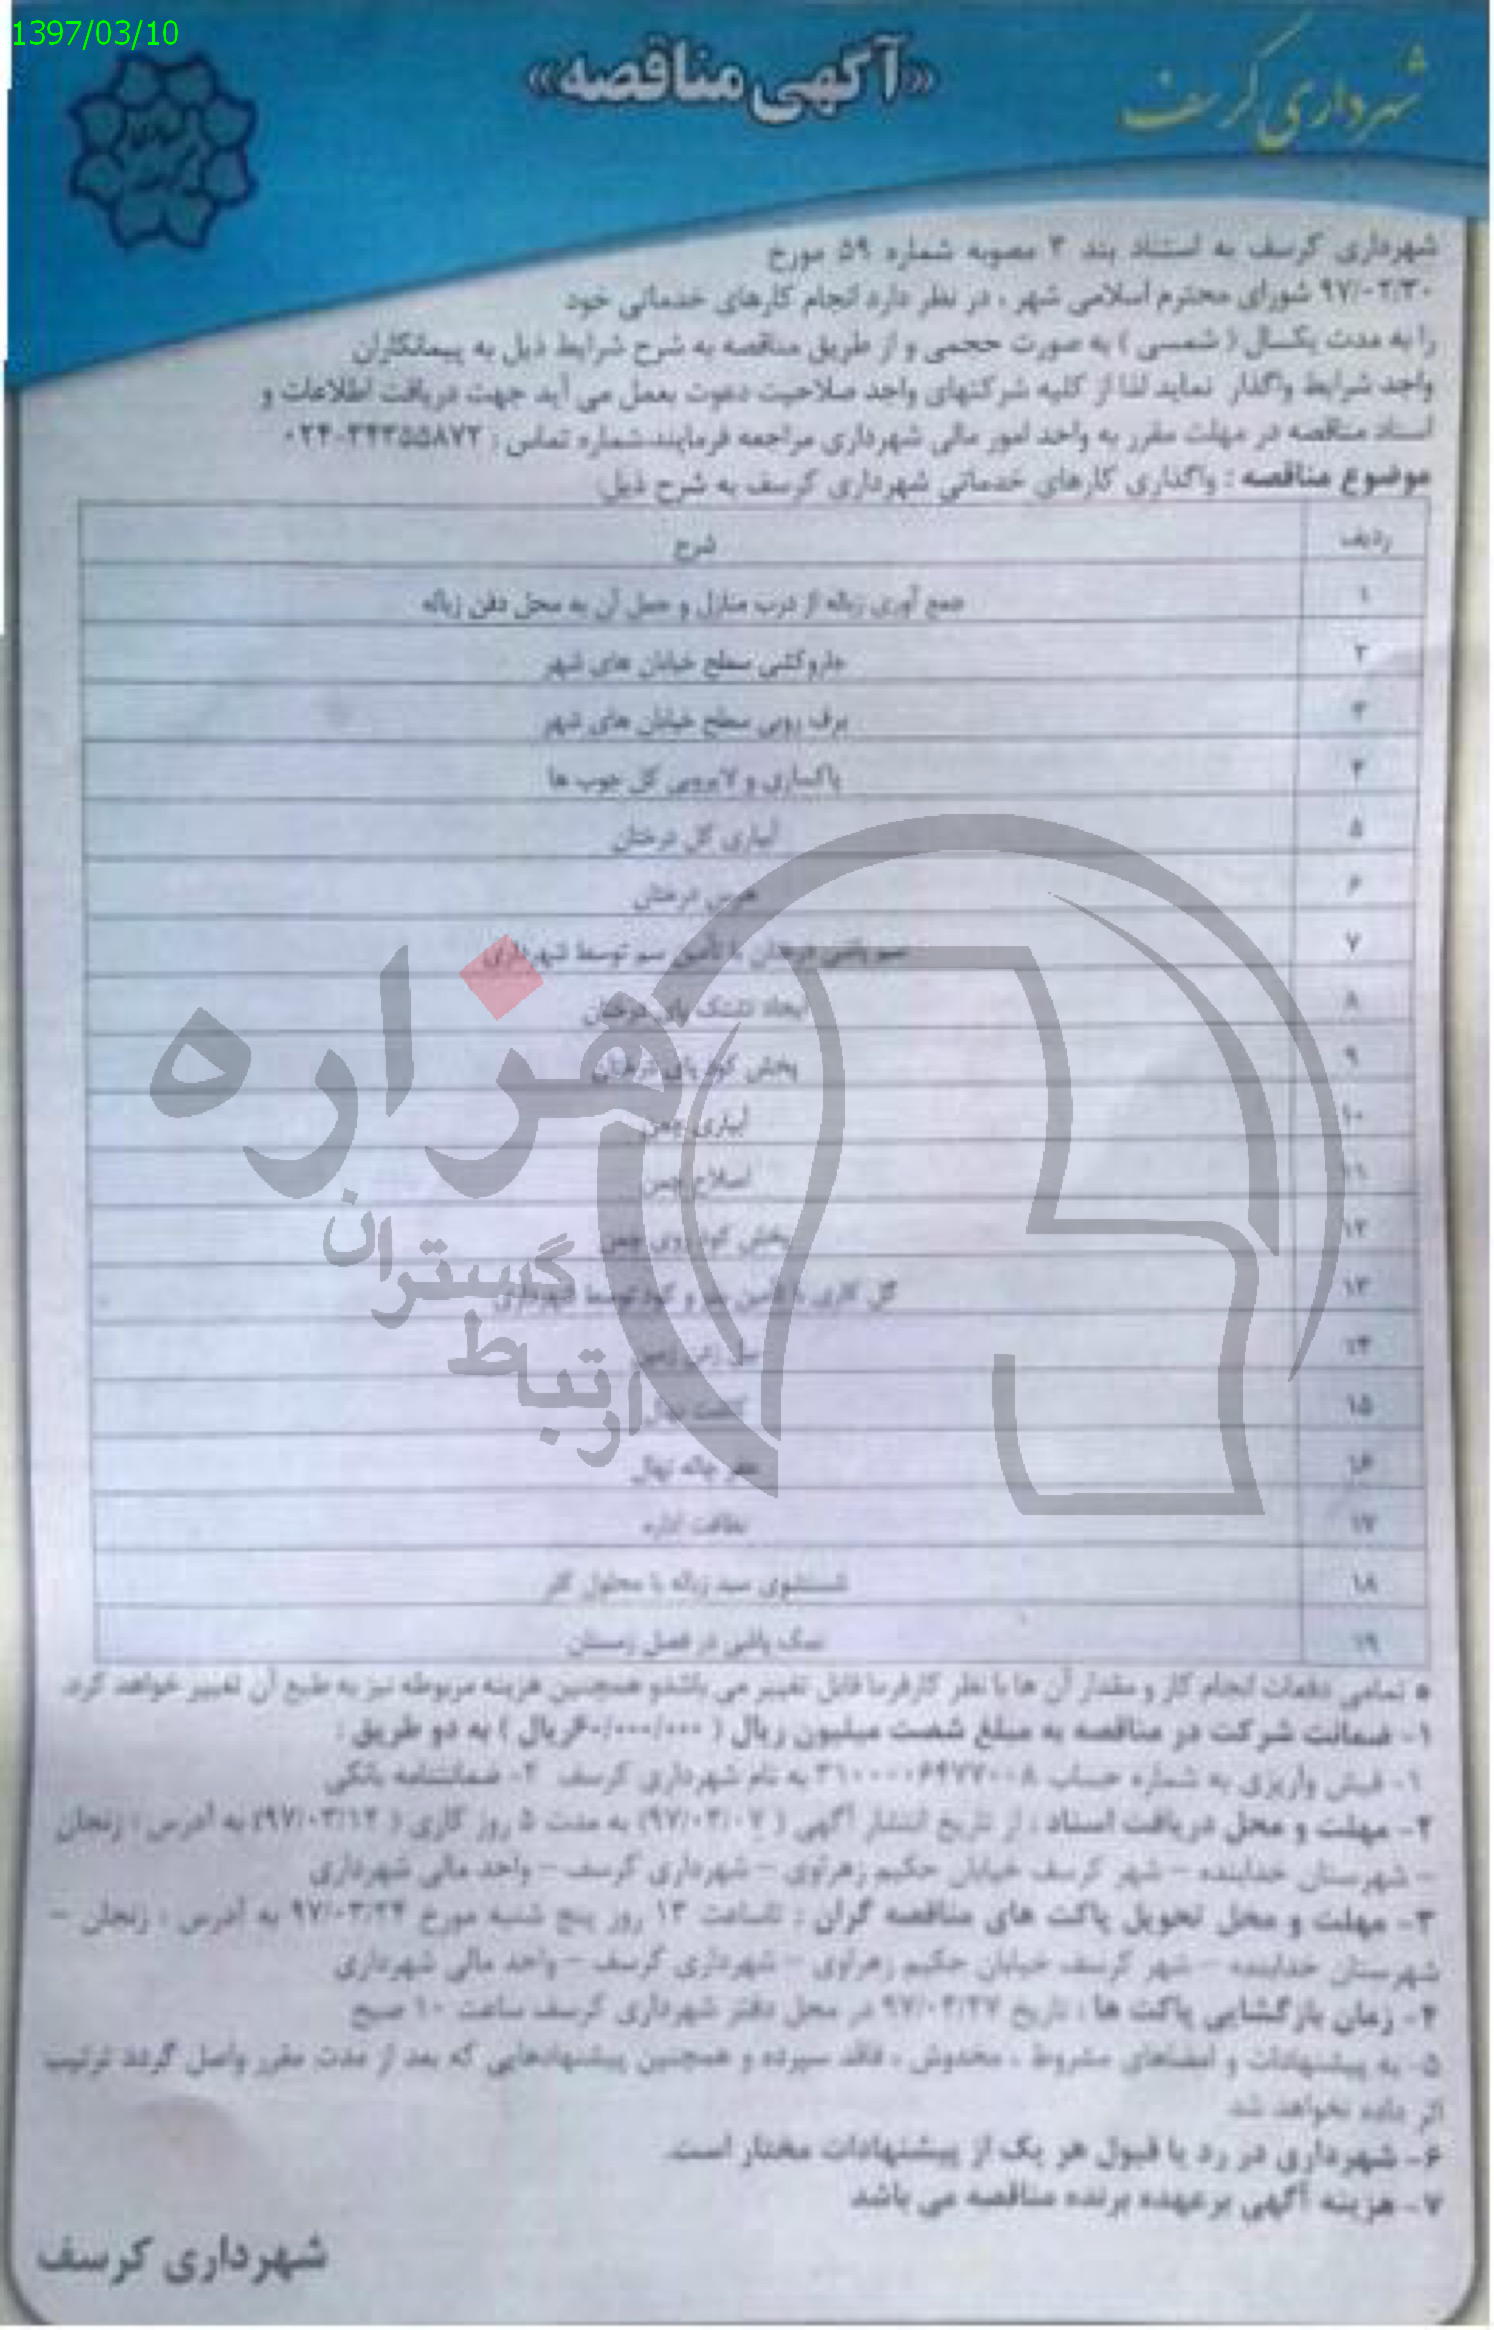 1397/03/10
شهرداری کرسف
«آگهی مناقصه»
شهرداری کرسف به استناد بند ۳ مصوبه شماره ۵۹ مورخ
۹۷/۰۲/۳۰ شورای محترم اسلامی شهر ، در نظر دارد انجام کارهای خدماتی خود
را به مدت یکسال ( شمسی ) به صورت حجمی و از طریق مناقصه به شرح شرایط ذیل به پیمانکاران
واجد شرایط واگذار نماید لذا از کلیه شرکتهای واجد صلاحیت دعوت بعمل می آید جهت دریافت اطلاعات و
اسناد مناقصه در مهلت مقرر به واحد امور مالی شهرداری مراجعه فرمایند.شماره تماس :
موضوع مناقصه : واگذاری کارهای خدماتی شهرداری کرسف به شرح ذیل:
ردیف شرح
۱ جمع آوری زباله از درب منازل و حمل آن به محل دفن زباله
۲ جاروکشی سطح خیابان های شهر
۳ برف روبی سطح خیابان های شهر
۴ پاکسازی و لایروبی کل جوب ها
۵ آبیاری کل درختان
۶ هرس درختان
۷ سم پاشی درختان با تأمین سم توسط شهرداری
۸ ایجاد تشتک پای درختان
۹ پخش کود پای درختان
۱۰ آبیاری چمن
۱۱ اصلاح چمن
۱۲ پخش کود روی چمن
۱۳ گل کاری با تأمین بذر و کود توسط شهرداری
۱۴ بیل زنی زمین
۱۵ کاشت نهال
۱۶ حفر چاله نهال
۱۷ نظافت اداره
۱۸ شستشوی سبد زباله با محلول کلر
۱۹ نمک پاشی در فصل زمستان
هزاره
ارتباط گستران
* تمامی دفعات انجام کار و مقدار آن ها با نظر کارفرما قابل تغییر می باشدو همچنین هزینه مربوطه نیز به طبع آن تغییر خواهد کرد.
۱- ضمانت شرکت در مناقصه به مبلغ شصت میلیون ریال ( ۶۰/۰۰۰/۰۰۰ریال ) به دو طریق :
۱- فیش واریزی به شماره حساب به نام شهرداری کرسف ۲- ضمانتنامه بانکی
۲- مهلت و محل دریافت اسناد : از تاریخ انتشار آگهی ( ۹۷/۰۳/۰۷) به مدت ۵ روز کاری ( ۹۷/۰۳/۱۳) به آدرس : زنجان
– شهرستان خدابنده – شهر کرسف خیابان حکیم زهراوی – شهرداری کرسف – واحد مالی شهرداری
۳- مهلت و محل تحویل پاکت های مناقصه گران : تاساعت ۱۳ روز پنج شنبه مورخ ۹۷/۰۳/۲۴ به آدرس : زنجان –
شهرستان خدابنده – شهر کرسف خیابان حکیم زهراوی – شهرداری کرسف – واحد مالی شهرداری
۴- زمان بازگشایی پاکت ها : تاریخ ۹۷/۰۳/۲۷ در محل دفتر شهرداری کرسف ساعت ۱۰ صبح
۵- به پیشنهادات و امضاهای مشروط ، مخدوش ، فاقد سپرده و همچنین پیشنهادهایی که بعد از مدت مقرر واصل گردد ترتیب
اثر داده نخواهد شد
۶- شهرداری در رد یا قبول هر یک از پیشنهادات مختار است.
۷- هزینه آگهی برعهده برنده مناقصه می باشد
شهرداری کرسف